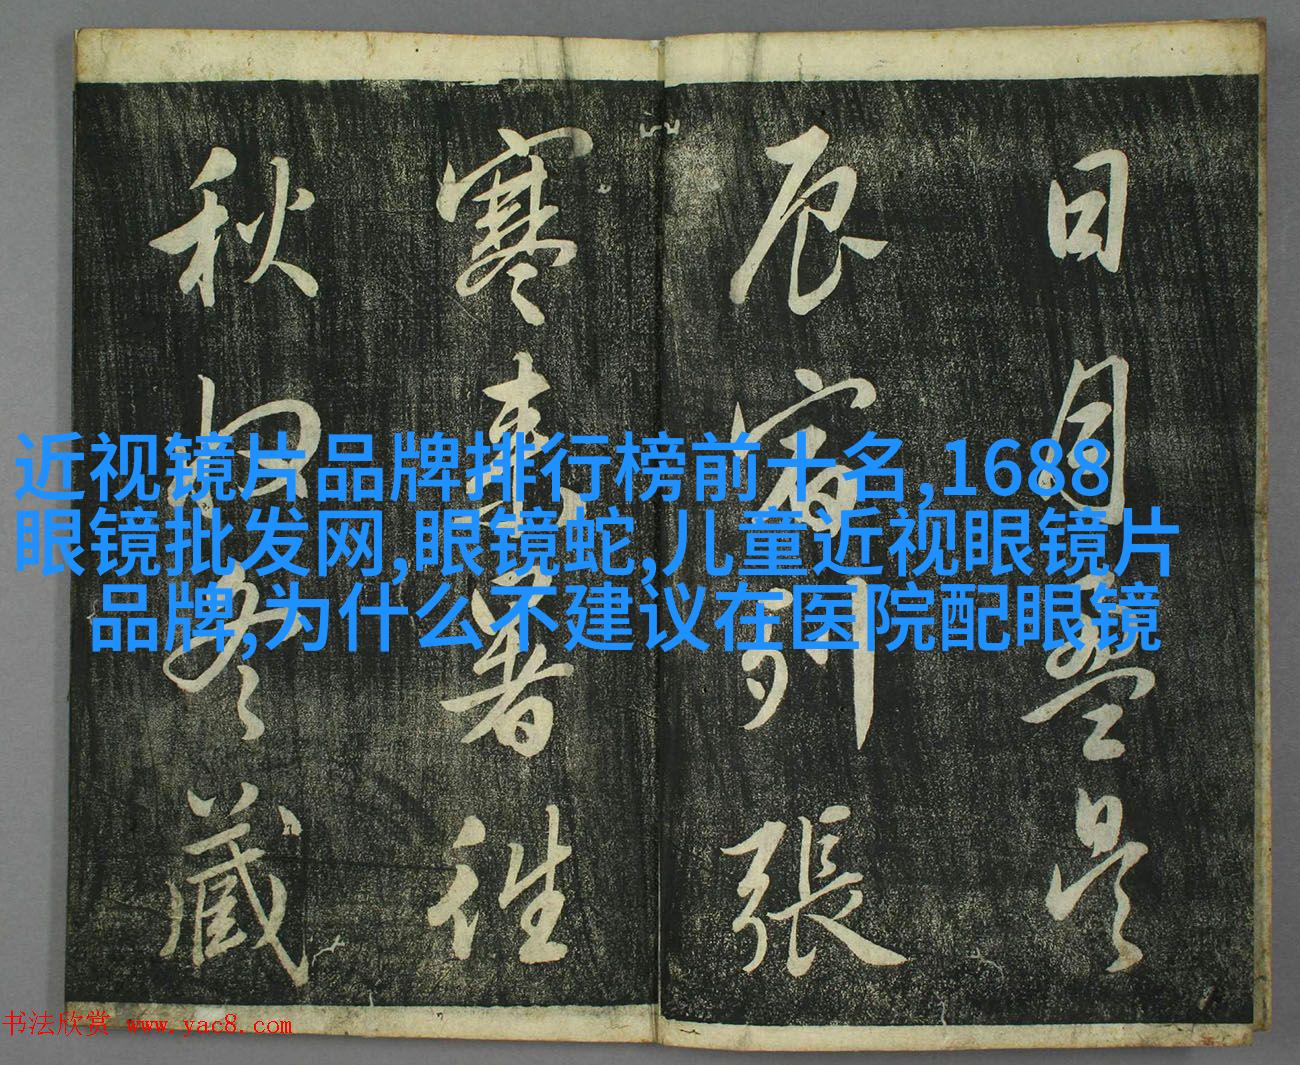 日月盈昃
辰宿列張
寒來暑往
秋收冬藏
近视镜片品牌排行榜前十名,1688
眼镜批发网,眼镜蛇,儿童近视眼镜片
品牌,为什么不建议在医院配眼镜
书法欣赏 www.yac8.com